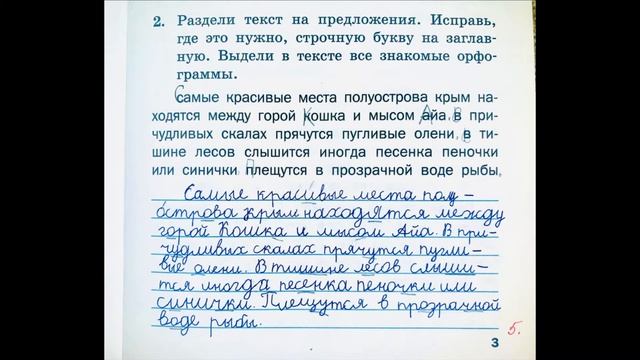 2. Раздели текст на предложения. Исправь,
где это нужно, строчную букву на заглав-
ную. Выдели в тексте все знакомые орфо-
граммы.
Самые красивые места полуострова крым на-
ходятся между горой Кошка и мысом Айа. В при-
чудливых скалах прячутся пугливые олени. В ти-
шине лесов слышится иногда песенка пеночки
или синички. Плещутся в прозрачной воде рыбы.
Самые красивые места полу-
острова крым находятся между
горой Кошка и мысом Айа. В при-
чудливых скалах прячутся пугли-
вые олени. В тишине лесов слыши-
тся иногда песенка пеночки или
синички. Плещутся в прозрачной
воде рыбы.
3
5.